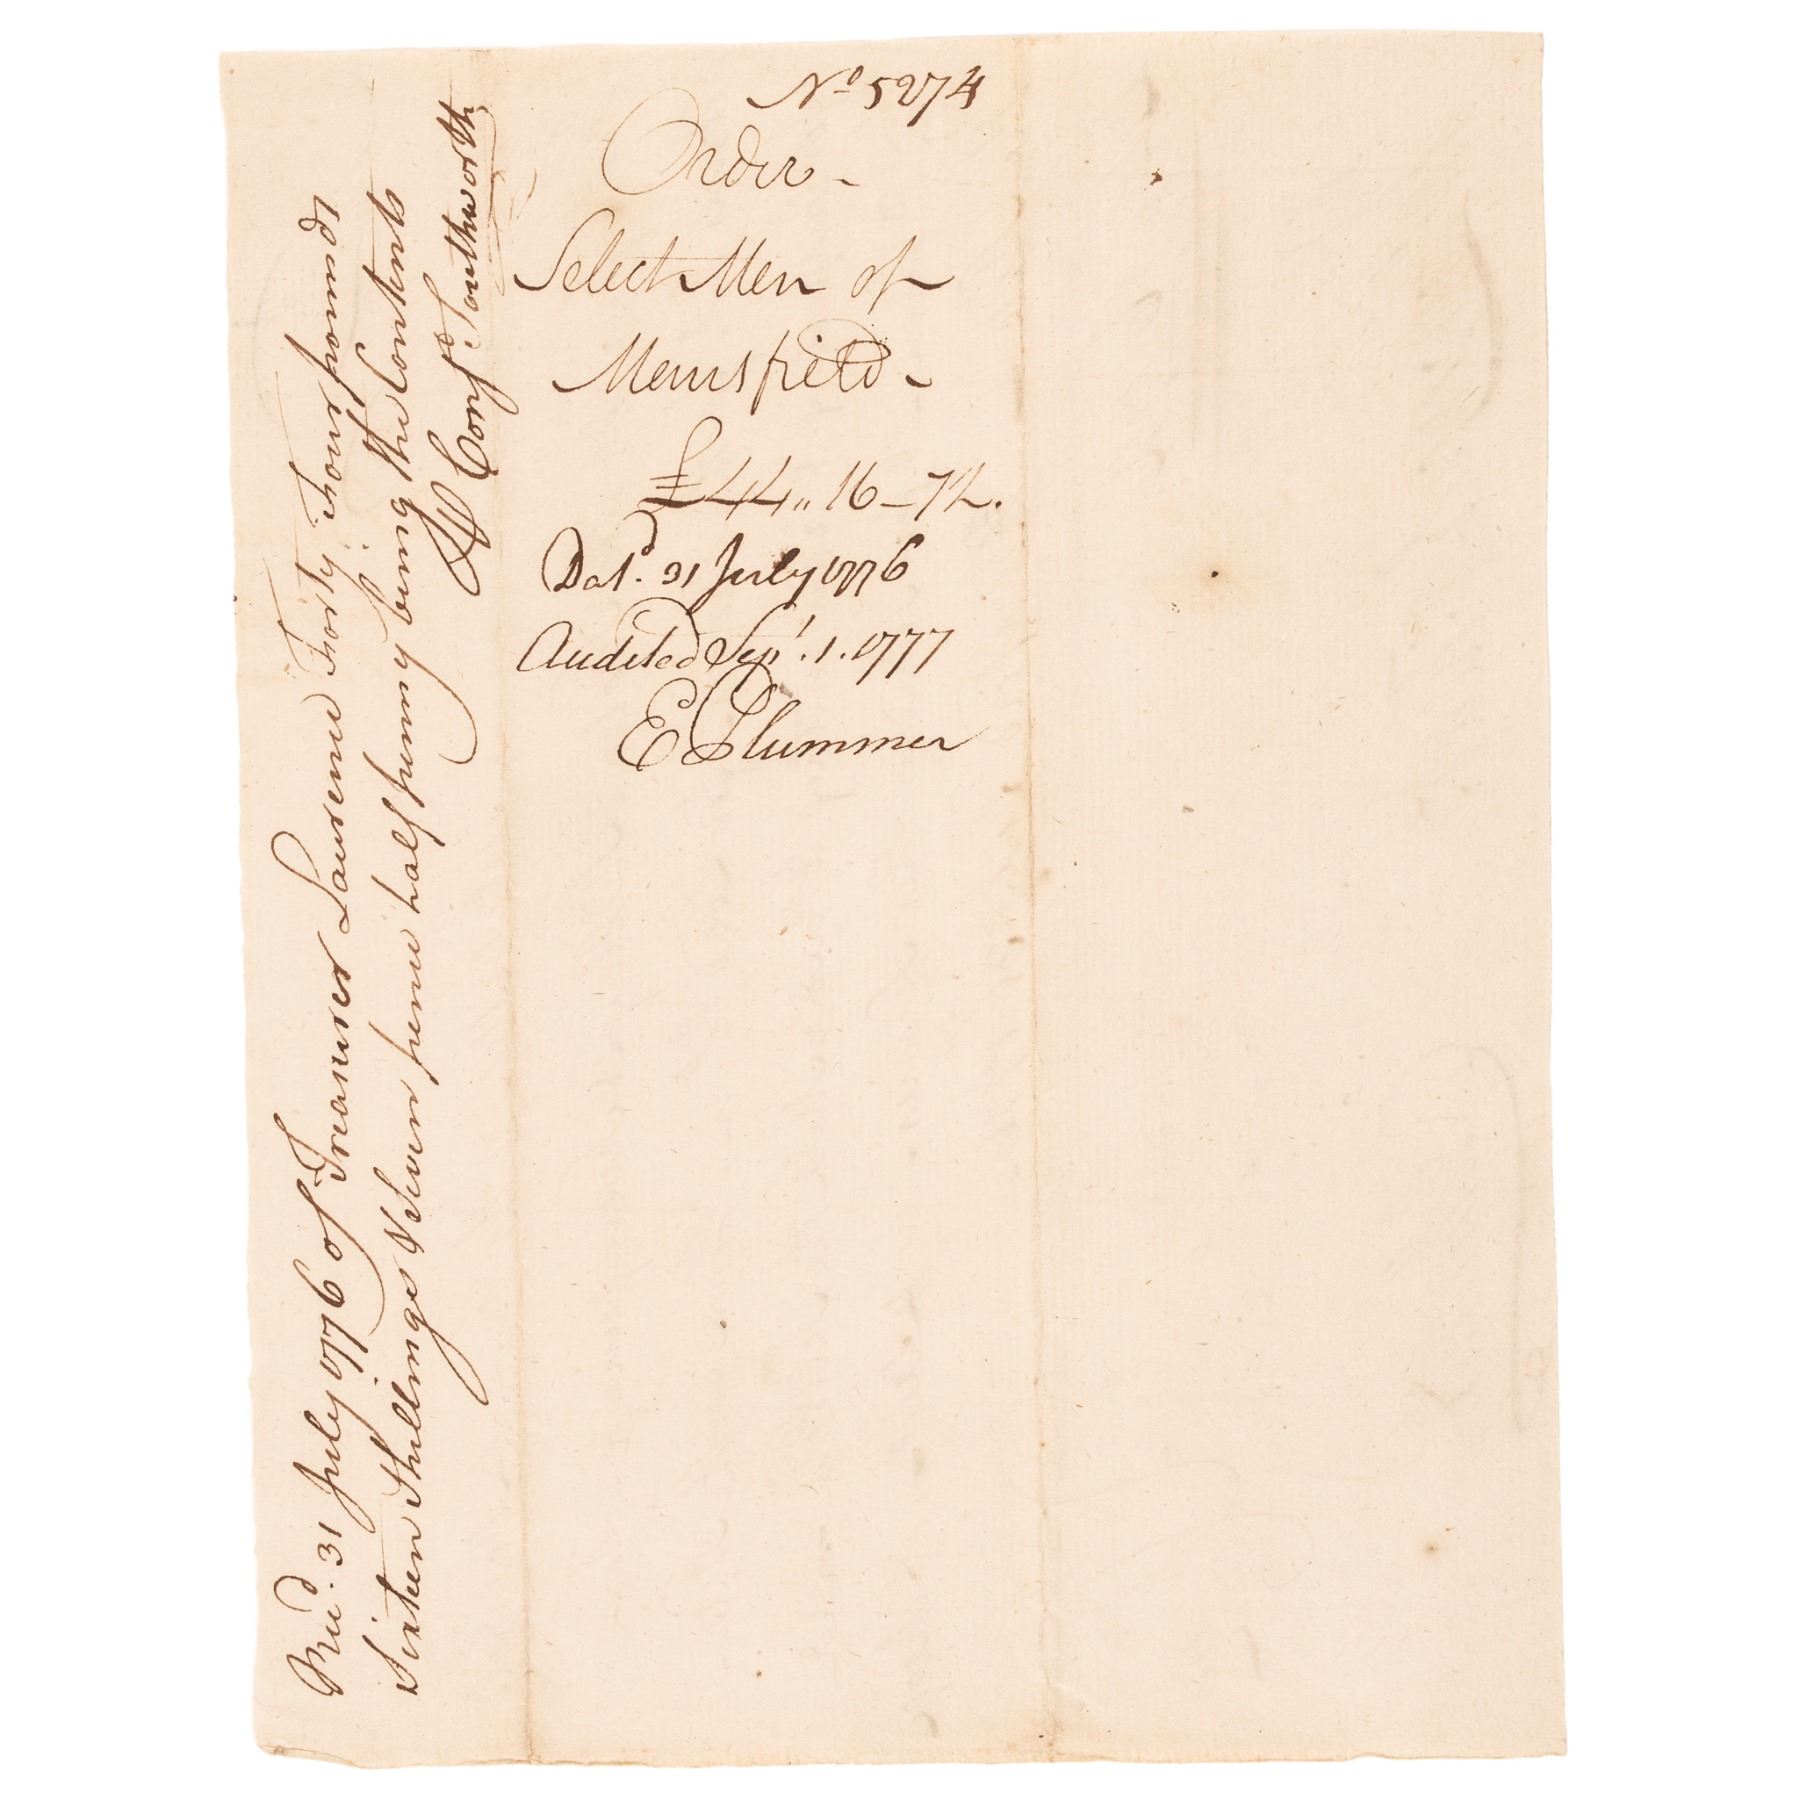 No 5274
Order -
Select Men of
Mansfield -
£44 " 16 - 7½.
Datd. 31 July 1776
Audited Sept. 1. 1777
E Plummer
Recd. 31 July 1776 of Treasurer Laurence Forty Four pounds
Sixteen Shillings & Seven pence half penny being the Contents
Const. Southworth